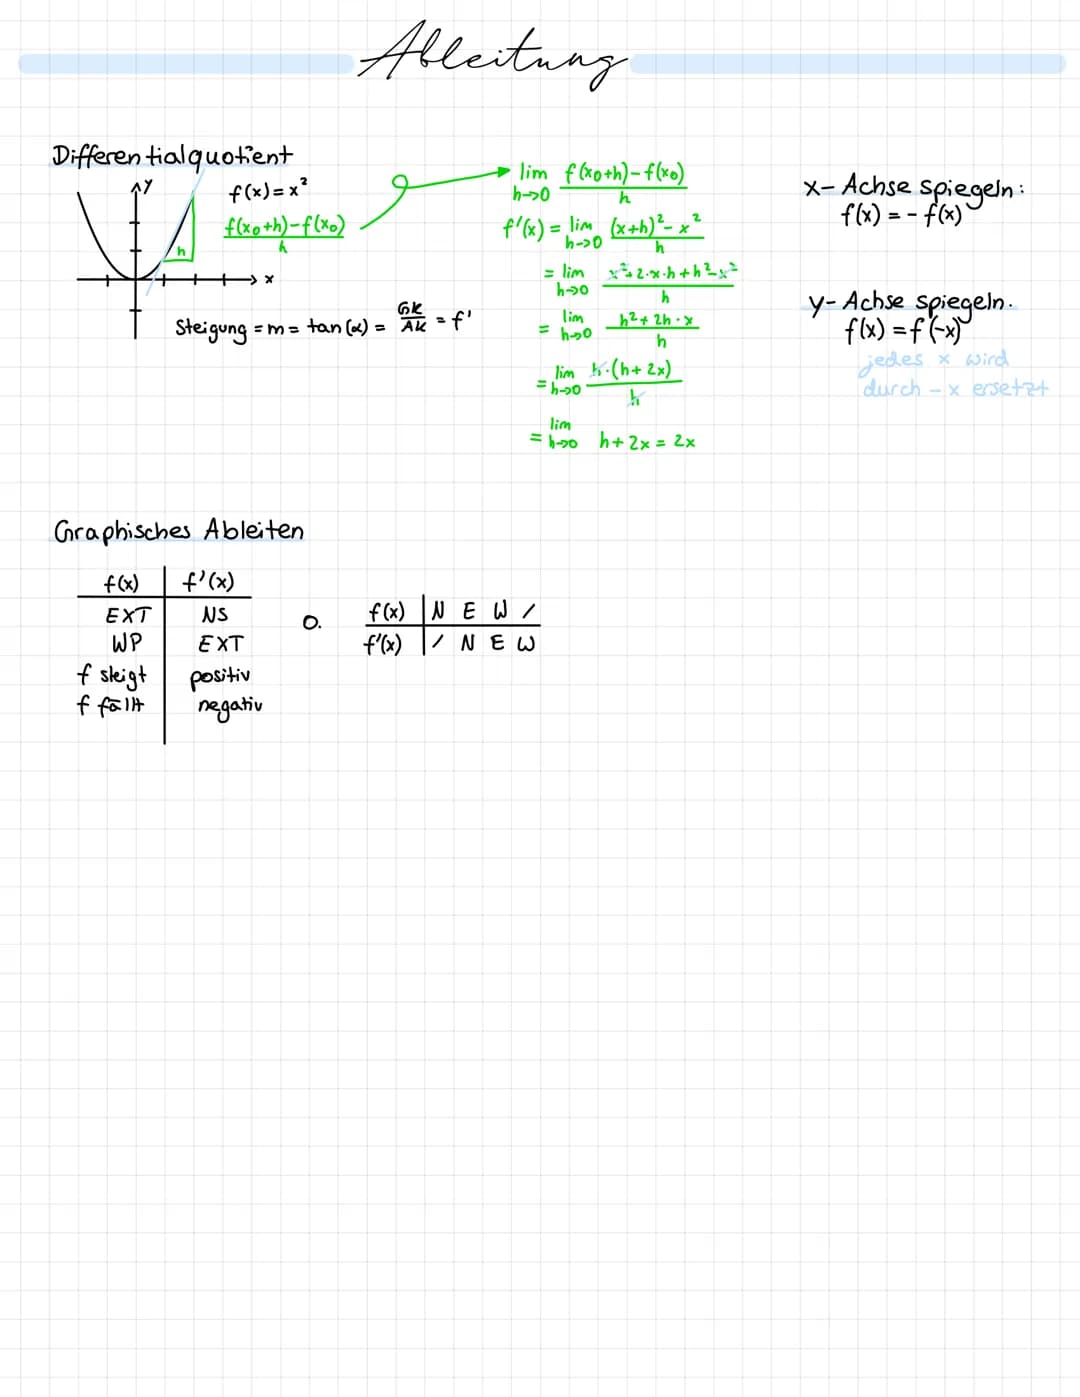 Ableitung
Differentialquotient
y
f(x) = x²
f(x₀+h)-f(x₀)
h
h
x
Steigung = m = tan (α) = GK/AK = f'
lim f(x₀+h)-f(x₀)
h->0 h
f'(x) = lim (x+h)² - x²
h->0 h
= lim x²+2·x·h+h²-x²
h->0 h
= lim h²+2h·x
h->0 h
= lim h·(h+2x)
h->0 h
= lim h+2x = 2x
h->0
x-Achse spiegeln:
f(x) = - f(x)
y-Achse spiegeln.
f(x) = f(-x)
jedes x wird
durch -x ersetzt
Graphisches Ableiten
f(x) f'(x)
EXT NS
WP EXT
f steigt positiv
f fällt negativ
o.
f(x) N E W /
f'(x) / N E W